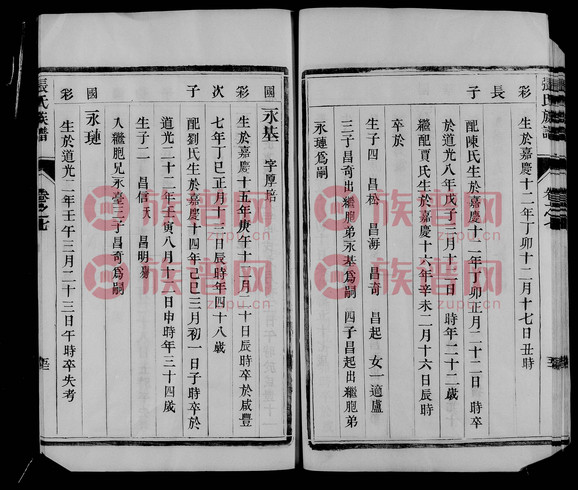 彩 長 子
生於嘉慶十二年丁卯十二月十七日丑時
配陳氏生於嘉慶十二年丁卯正月二十二日 時卒
於道光八年戊子三月十三日 時年二十二歲
繼配賈氏生於嘉慶十六年辛未二月十六日辰時
卒於
生子四 昌松 昌海 昌奇 昌起 女一適盧
三子昌奇出繼胞弟永基為嗣 四子昌起出繼胞弟
永璉為嗣
國 彩 次 子
永基 字厚培
生於嘉慶十五年庚午十二月二十日辰時卒於咸豐
七年丁巳正月十三日辰時年四十八歲
配劉氏生於嘉慶十四年己巳三月初一日子時卒於
道光二十二年壬寅八月十一日申時年三十四歲
生子二 昌信夭 昌明
入繼胞兄永臺三子昌奇為嗣
國 彩
永璉
生於道光二年壬午三月二十三日午時卒失考
張氏族譜
卷之七
族谱网
zupu.cn